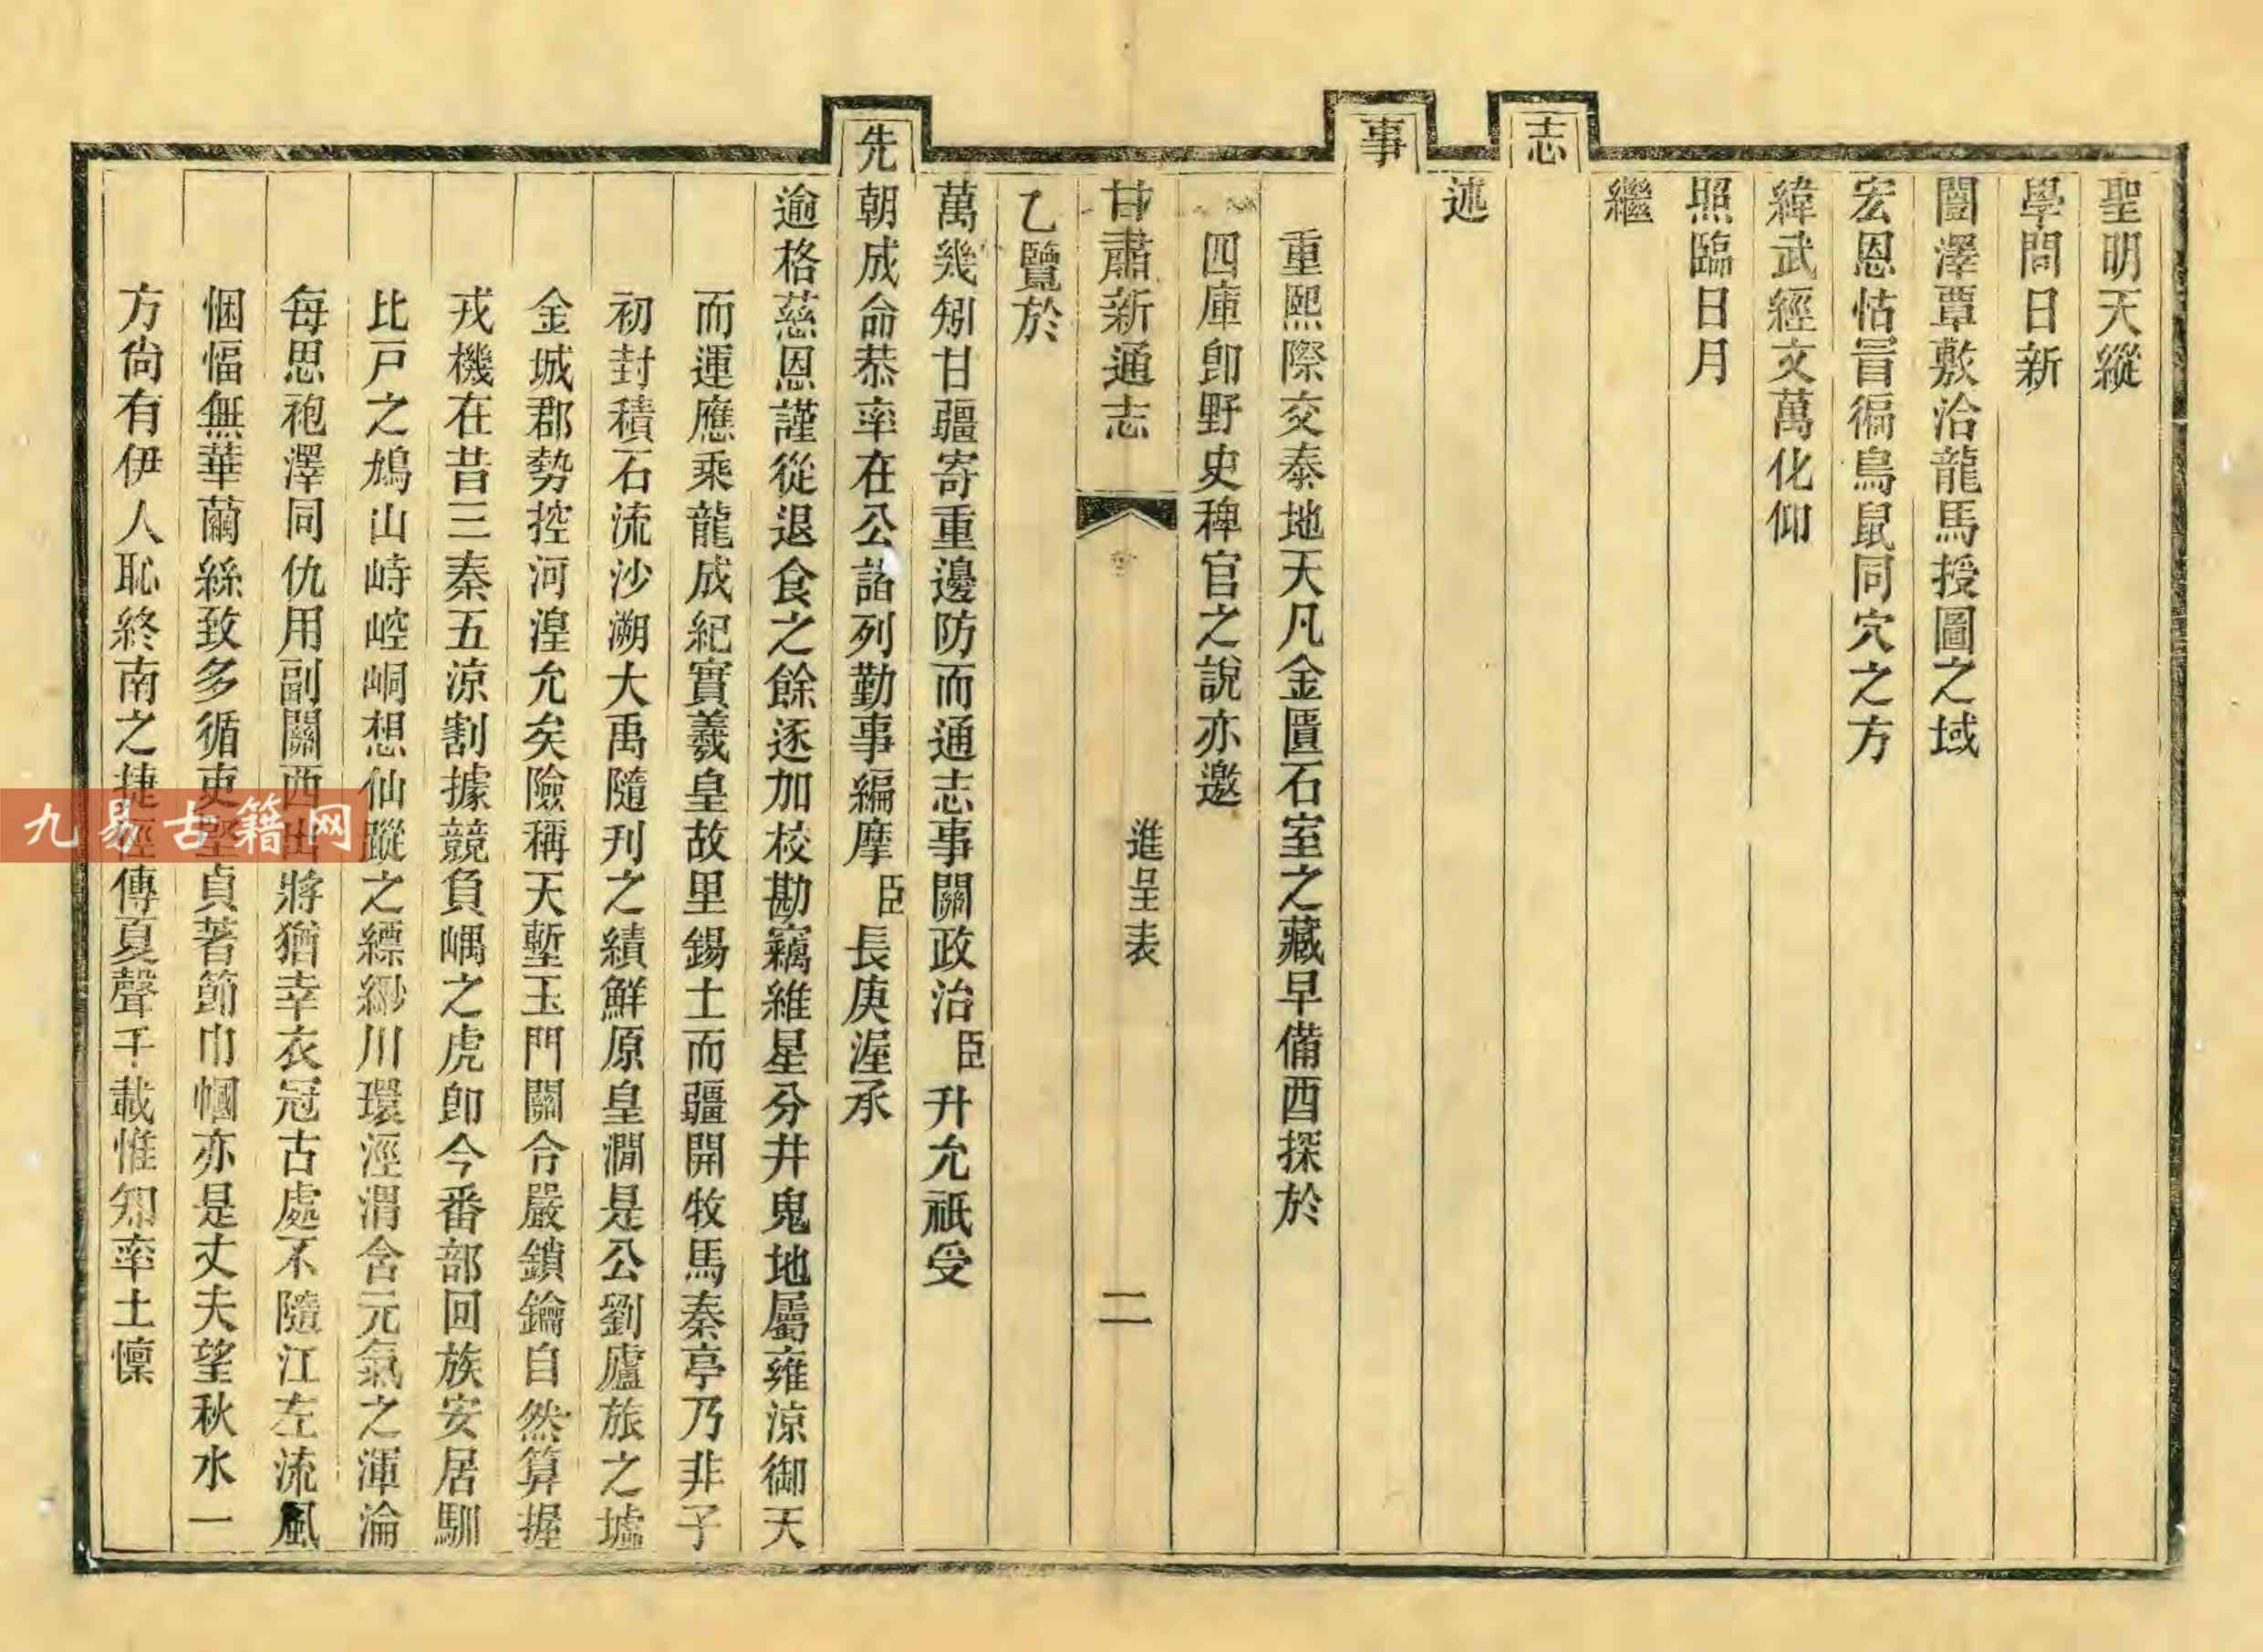 聖明天縱
學問日新
闓澤覃敷洽龍馬授圖之域
宏恩怙冒徧鳥鼠同穴之方
緯武經文萬化仰
照臨日月
繼
志
述
事
重熙際交泰地天凡金匱石室之藏早備酉探於
四庫卽野史稗官之說亦邀
甘肅新通志
進呈表
二
乙覽於
萬幾矧甘疆寄重邊防而通志事關政治臣升允祇受
先朝成命恭率在公諮列勤事編摩臣長庚渥承
逾格慈恩謹從退食之餘逐加校勘竊維星分井鬼地屬雍涼御天
而運應乘龍成紀實羲皇故里錫土而疆開牧馬秦亭乃非子
初封積石流沙溯大禹隨刊之績鮮原皇澗是公劉廬旅之墟
金城郡勢控河湟允矣險稱天塹玉門關令嚴鎖鑰自然算握
戎機在昔三秦五涼割據競負嵎之虎卽今番部回族安居馴
比戸之鳩山峙崆峒想仙蹤之縹緲川環涇渭含元氣之渾淪
每思袍澤同仇用副關西出將猶幸衣冠古處不隨江左流風
悃愊無華繭絲致多循吏堅貞著節巾幗亦是丈夫望秋水一
方尙有伊人恥終南之捷徑傳夏聲千載惟知率土懍
九易古籍网